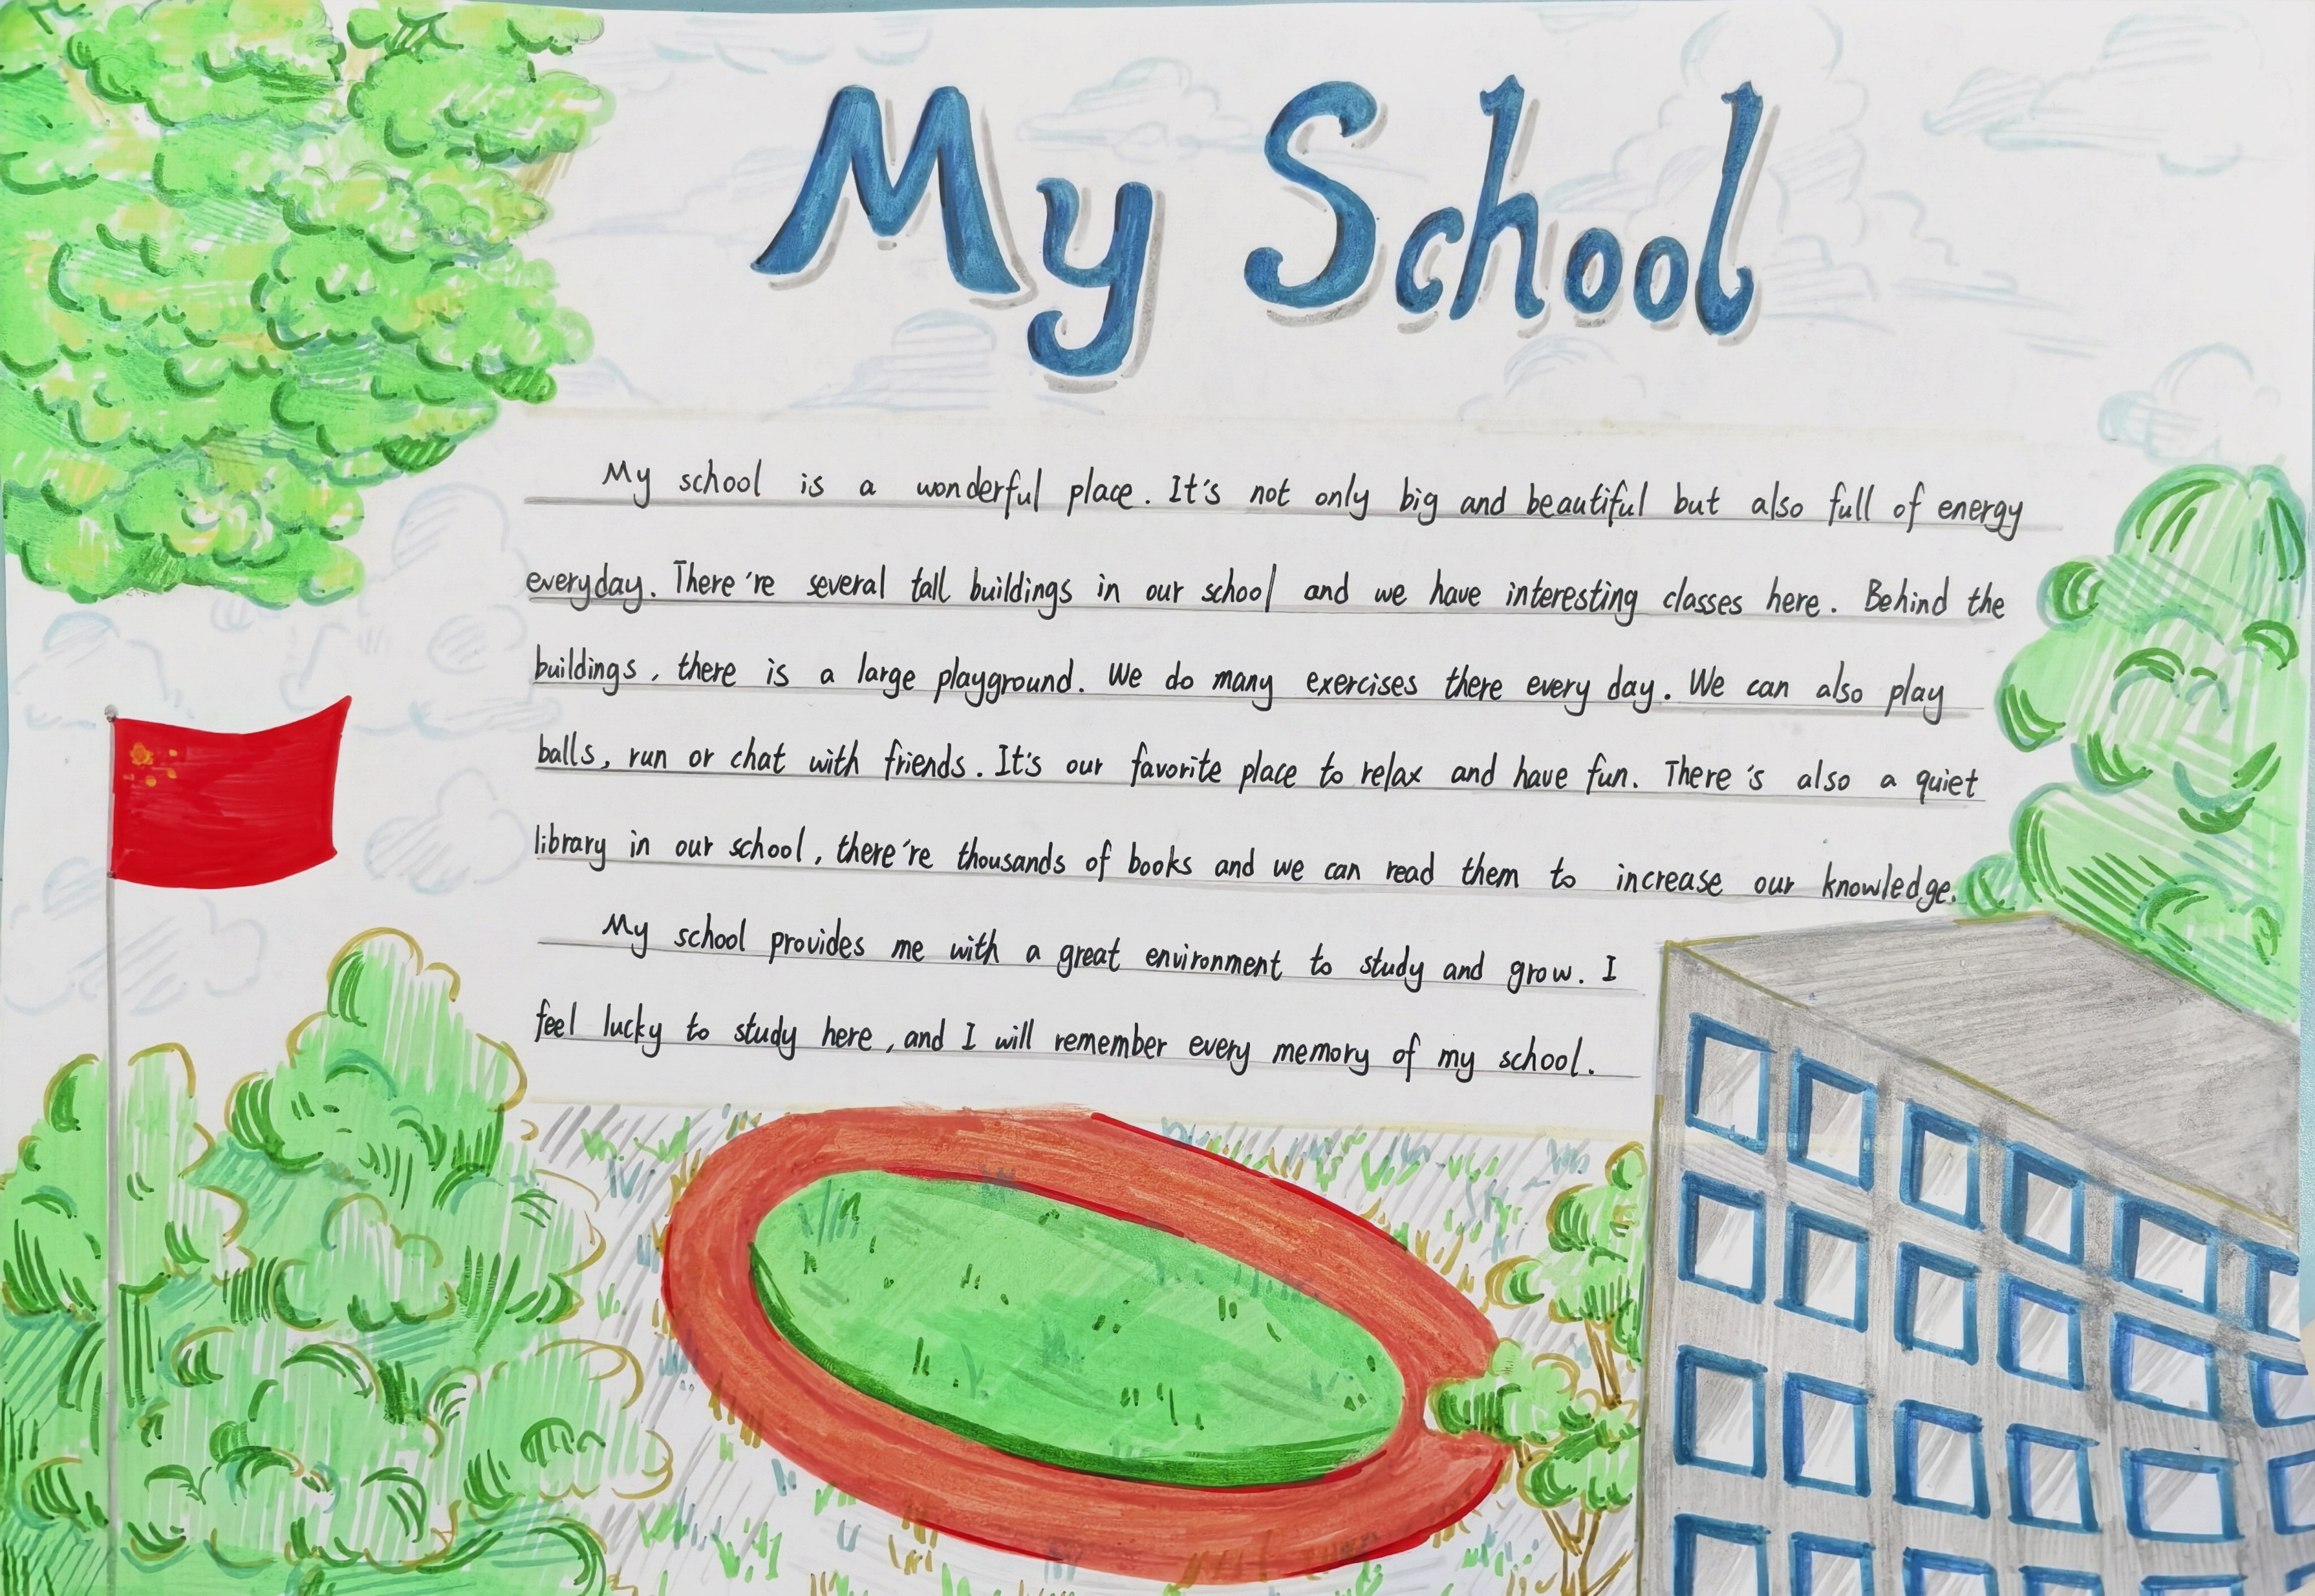 My School
My school is a wonderful place. It's not only big and beautiful but also full of energy
everyday. There're several tall buildings in our school and we have interesting classes here. Behind the
buildings, there is a large playground. We do many exercises there every day. We can also play
balls, run or chat with friends. It's our favorite place to relax and have fun. There's also a quiet
library in our school, there're thousands of books and we can read them to increase our knowledge.
My school provides me with a great environment to study and grow. I
feel lucky to study here, and I will remember every memory of my school.